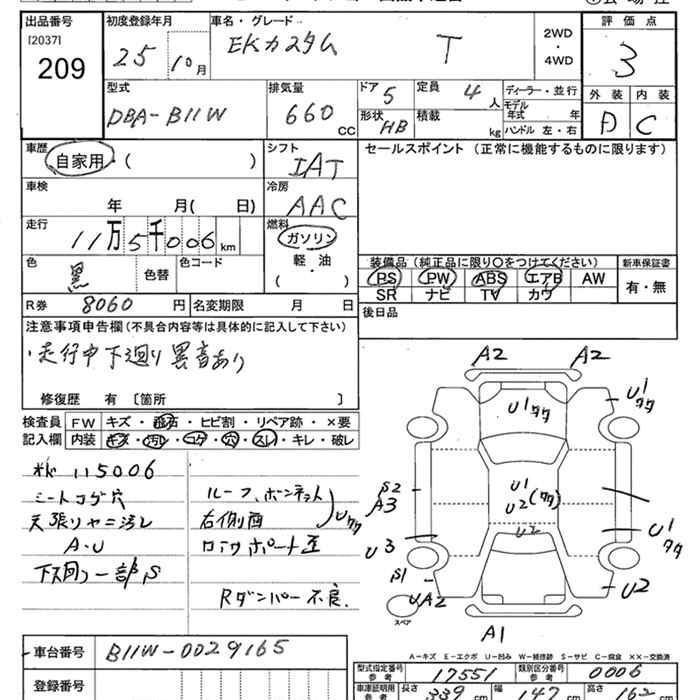 出品番号 初度登録年月 車名・グレード 2WD 評価点
[2037] 25 10月 EKカスタム T ・ 3
209 4WD
型式 排気量 ドア 5 定員 4人 ディーラー・並行 外装 内装
DBA-B11W 660 CC 形状 HB 積載 kg モデル年式 年 D C
ハンドル 左・右
車歴 シフト セールスポイント (正常に機能するものに限ります)
自家用・( ) IAT
車検 冷房
年 月( 日) AAC
走行 燃料
11万5千006km ガソリン
色 黒 色替 色コード 軽・油 装備品 (純正品に限り○をつけてください) 新車保証書
( ) PS PW ABS エアB AW 有・無
SR ナビ TV カワ
R券 8060円 名変期限 月 日 後日品
注意事項申告欄 (不具合内容等は具体的に記入して下さい)
・走行中下廻り異音あり
修復歴 有 〔箇所 〕
検査員 FW キズ・飛石・ヒビ割・リペア跡・×要
記入欄 内装 キズ・汚レ・コゲ・穴・スレ・キレ・破レ
115006
シートコゲ穴 ルーフ、ボンネット
天張りヤニ汚レ 右側面 Uタタ
A・U
下廻り一部S Rダンパー不良.
A2 A2
U1タタ U1タタ
S2 U1
A3 U2(タタ)
U2 U1タタ
U3
S1 U2
UA2
スペア
A1
A-キズ E-エクボ U-凹み W-補修跡 S-サビ C-腐食 ××-交換済
車台番号 B11W-0029165
型式指定番号 参考 17551 類別区分番号 参考 0006
登録番号 車庫証明用 参考 長さ 339cm 幅 147cm 高さ